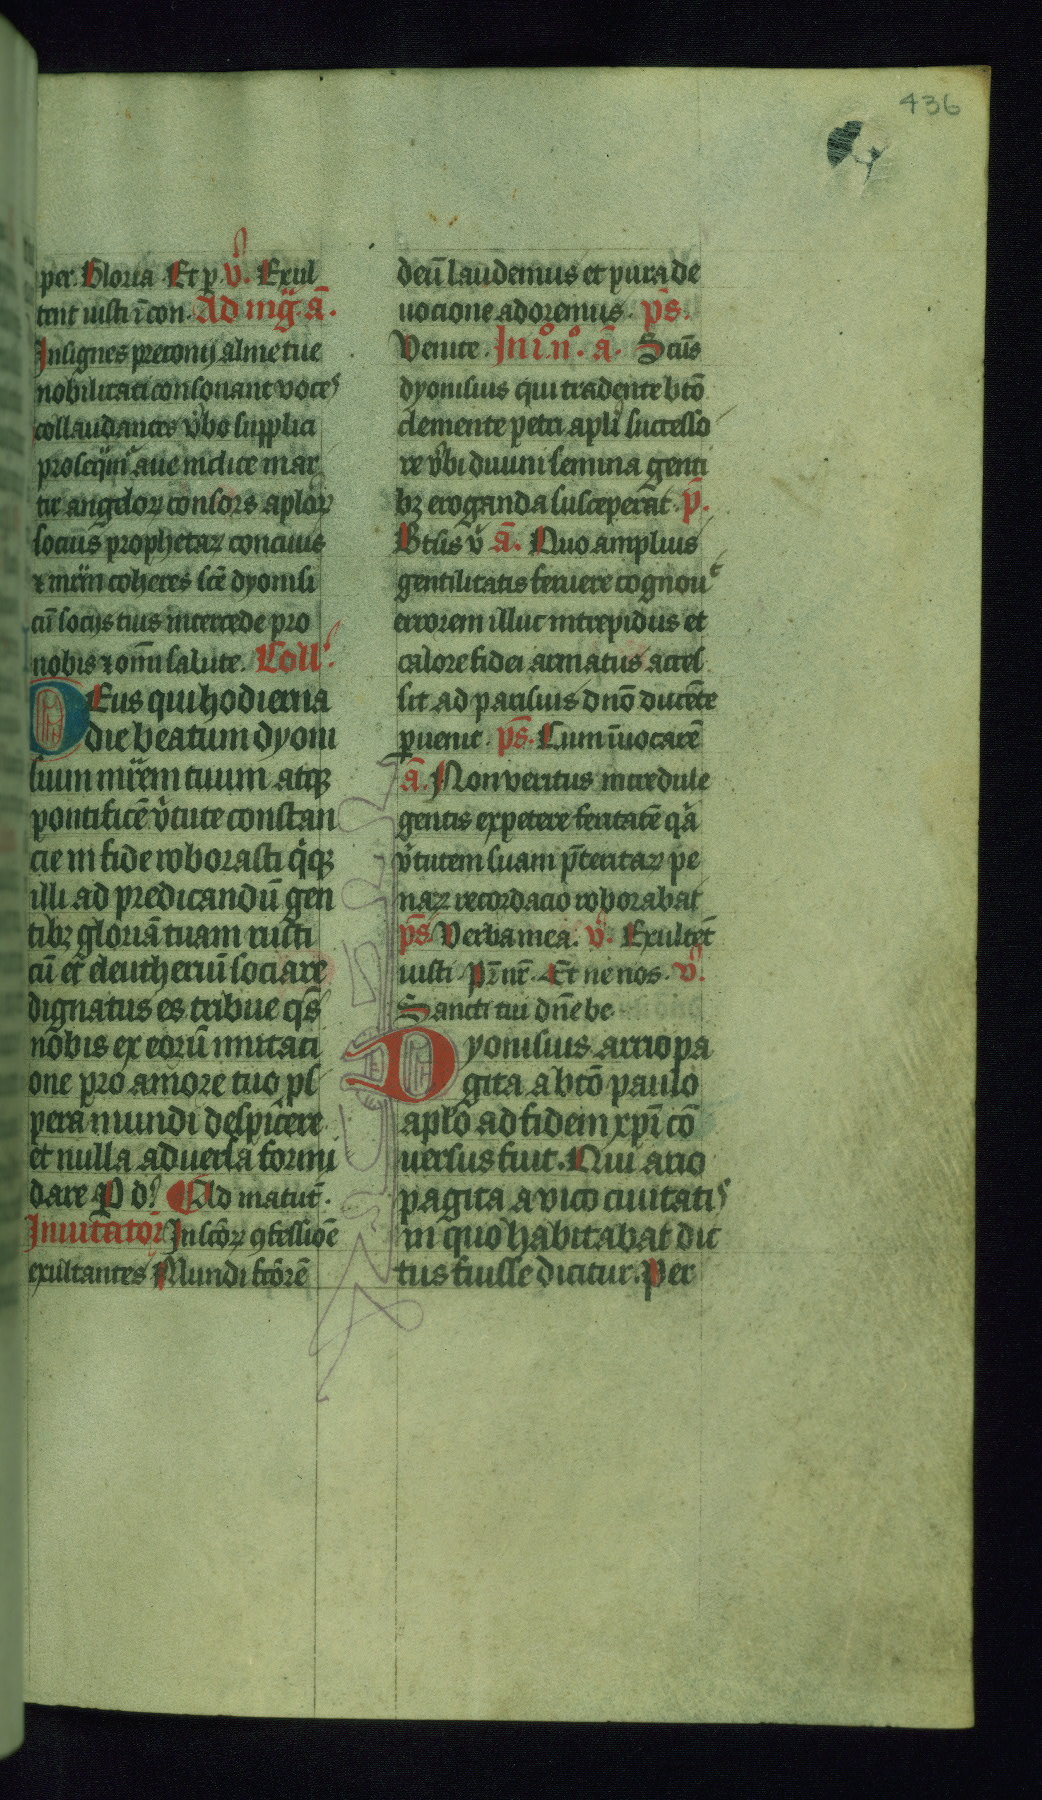 436
per. Gloria Et p. v̓. Exul
tent iusti ī con. Ad mg̅. a̅.
Insignes preconij alme tue
nobilitati consonant voces
collaudantes v̓bo supplici
proseq̅m̅ aue inclite mar
tir angeloꝝ consors aploꝝ
socius prophetaꝝ conciuis
⁊ mr̅m coheres sc̅e dyonisi
cū socijs tuis intercede pro
nobis ⁊ om̅i salute. Coll̓.
DEus qui hodierna
die beatum dyoni
sium mr̅em tuum atqꝫ
pontificē v̓tute constan
cie in fide roborasti q̓qꝫ
illi ad predicandū gen
tibꝫ gloriā tuam rusti
cū et eleutheriū sociare
dignatus es tribue qs̅
nobis ex eorū imitaci
one pro amore tuo ꝓs
pera mundi despicere
et nulla aduersa formi
dare P d̓. Ad matut̅.
Inuitator̅ In sc̅oꝝ ꝯfessiōe
exultantes Mundi fc̅orē
deū laudemus et pura de
uocione adoremus. ps̅.
Venite. In i͏ͦ. nͦ. a̅. Sc̅us
dyonisius qui tradente bt̅o
clemente petri apl̅i successo
re v̓bi diuini semina genti
bꝫ eroganda susceperat. p̅.
Bt̅us v̓ a̅. Quo amplius
gentilitatis feruere cognouᵗ
errorem illuc intrepidus et
calore fidei armatus acces
sit ad parisius dn̅o ducēte
ꝑuenit. ps̅. Cum īuocarē
a̅. Non veritus incredule
gentis expetere feritatē qᷓ
v̓tutem suam p̅teritaꝝ pe
naꝝ recordacio roborabat
ps̅ Verba mea. v̓. Exultēt
iusti Pr̅ nr̅. Et ne nos. v̓.
Sancti tui dn̅e be
Dyonisius ariopa
gita a bt̅o paulo
aplo̅ ad fidem xp̅i cō
uersus fuit. Qui ario
pagita a vico ciuitatis
in quo habitabat dic
tus fuisse dicitur. Per